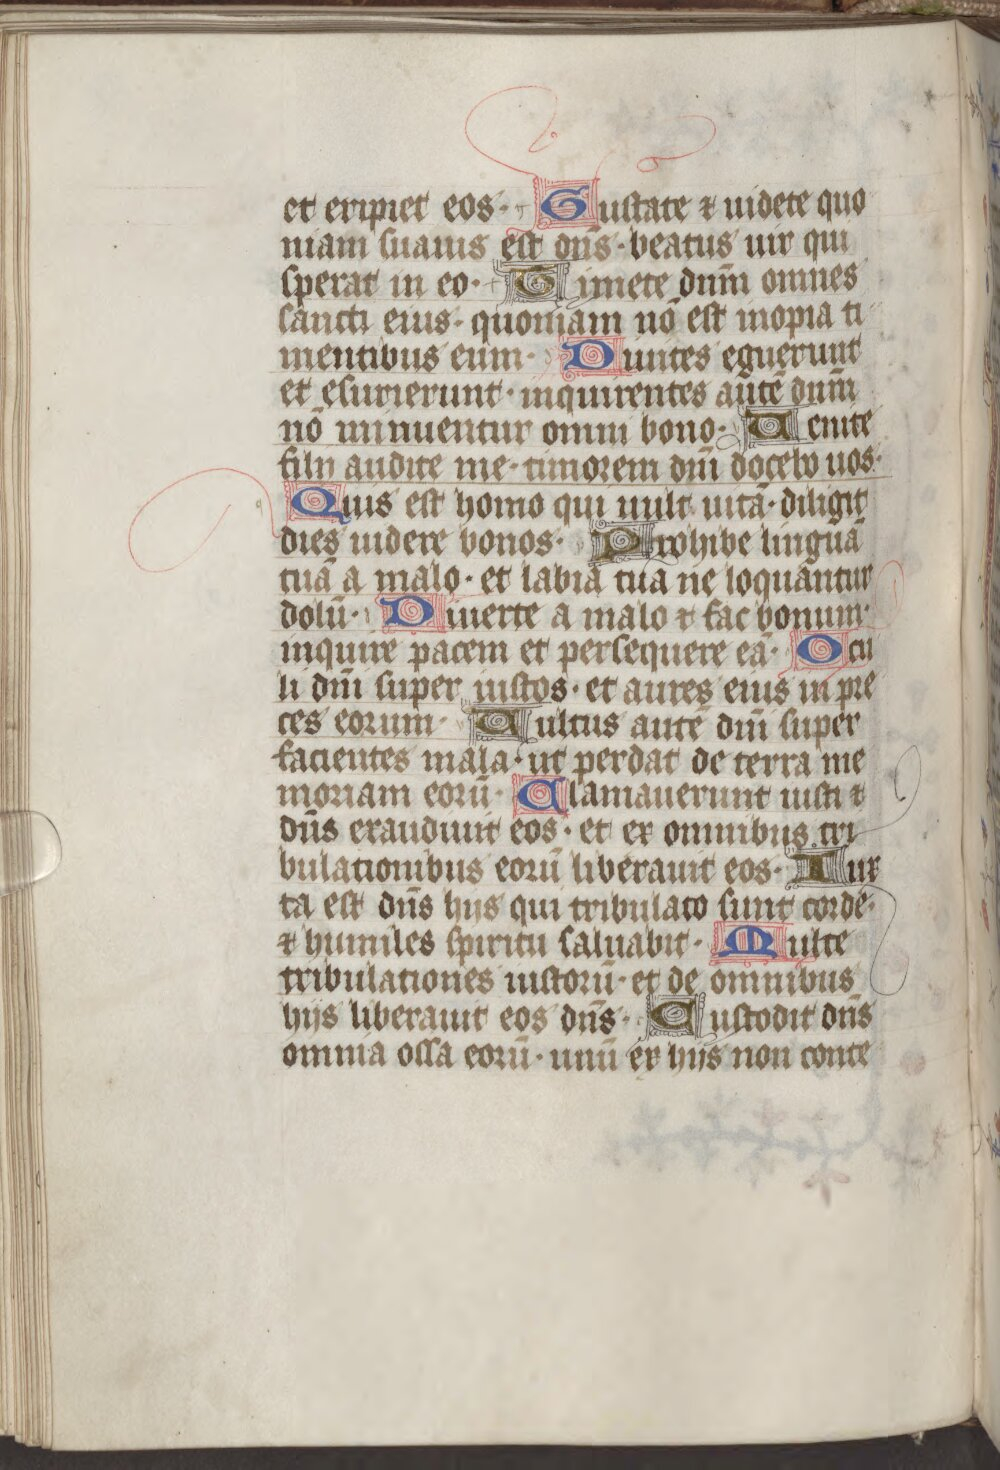 et eripiet eos· Gustate ⁊ uidete quo
niam suauis est dn̄s· beatus uir qui
sperat in eo· Timete dnm̄ omnes
sancti eius· quoniam nō est inopia ti
mentibus eum· Diuites eguerunt
et esurierunt· inquirentes autē dnm̄
nō minuentur omni bono· Venite
filii audite me· timorem dn̄i docebo uos·
Quis est homo qui uult uitā· diligit
dies uidere bonos· Prohibe linguā
tuā a malo· et labia tua ne loquantur
dolū· Diuerte a malo ⁊ fac bonum·
inquire pacem et persequere eā· Ocu
li dn̄i super iustos· et aures eius in pre
ces eorum· Vultus autē dn̄i super
facientes mala· ut perdat de terra me
moriam eorū· Clamauerunt iusti ⁊
dn̄s exaudiuit eos· et ex omnibus tri
bulationibus eorū liberauit eos· Iux
ta est dn̄s hijs qui tribulato sunt corde·
⁊ humiles spiritu saluabit· Multe
tribulationes iustorū· et de omnibus
hijs liberauit eos dn̄s· Custodit dn̄s
omnia ossa eorū· unū ex hijs non conte